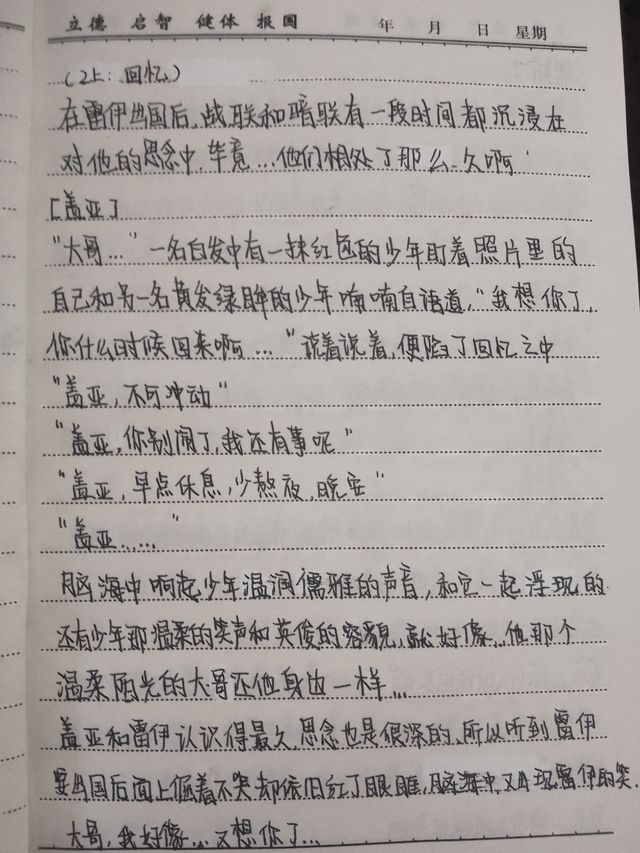 立德 启智 健体 报国 年 月 日 星期
(2上：回忆)
在雷伊当国后，战联和暗联有一段时间都沉浸在
对他的思念中，毕竟…他们相处了那么久啊
[盖亚]
“大哥…”一名白发中有一抹红色的少年盯着照片里的
自己和另一名黄发绿眸的少年喃喃自语道，“我想你了，
你什么时候回来啊…”说着说着，便陷了回忆之中
“盖亚，不可冲动”
“盖亚，你别闹了，我还有事呢”
“盖亚，早点休息，少熬夜，晚安”
“盖亚……”
脑海中响起少年温润儒雅的声音，和它一起浮现的
还有少年那温柔的笑声和英俊的容貌，就好像…他那个
温柔阳光的大哥还他身边一样…
盖亚和雷伊认识得最久，思念也是很深的，所以听到雷伊
要当国后面上倔着不哭却依旧红了眼眶，脑海中又再现雷伊的笑.
大哥，我好像…又想你了…